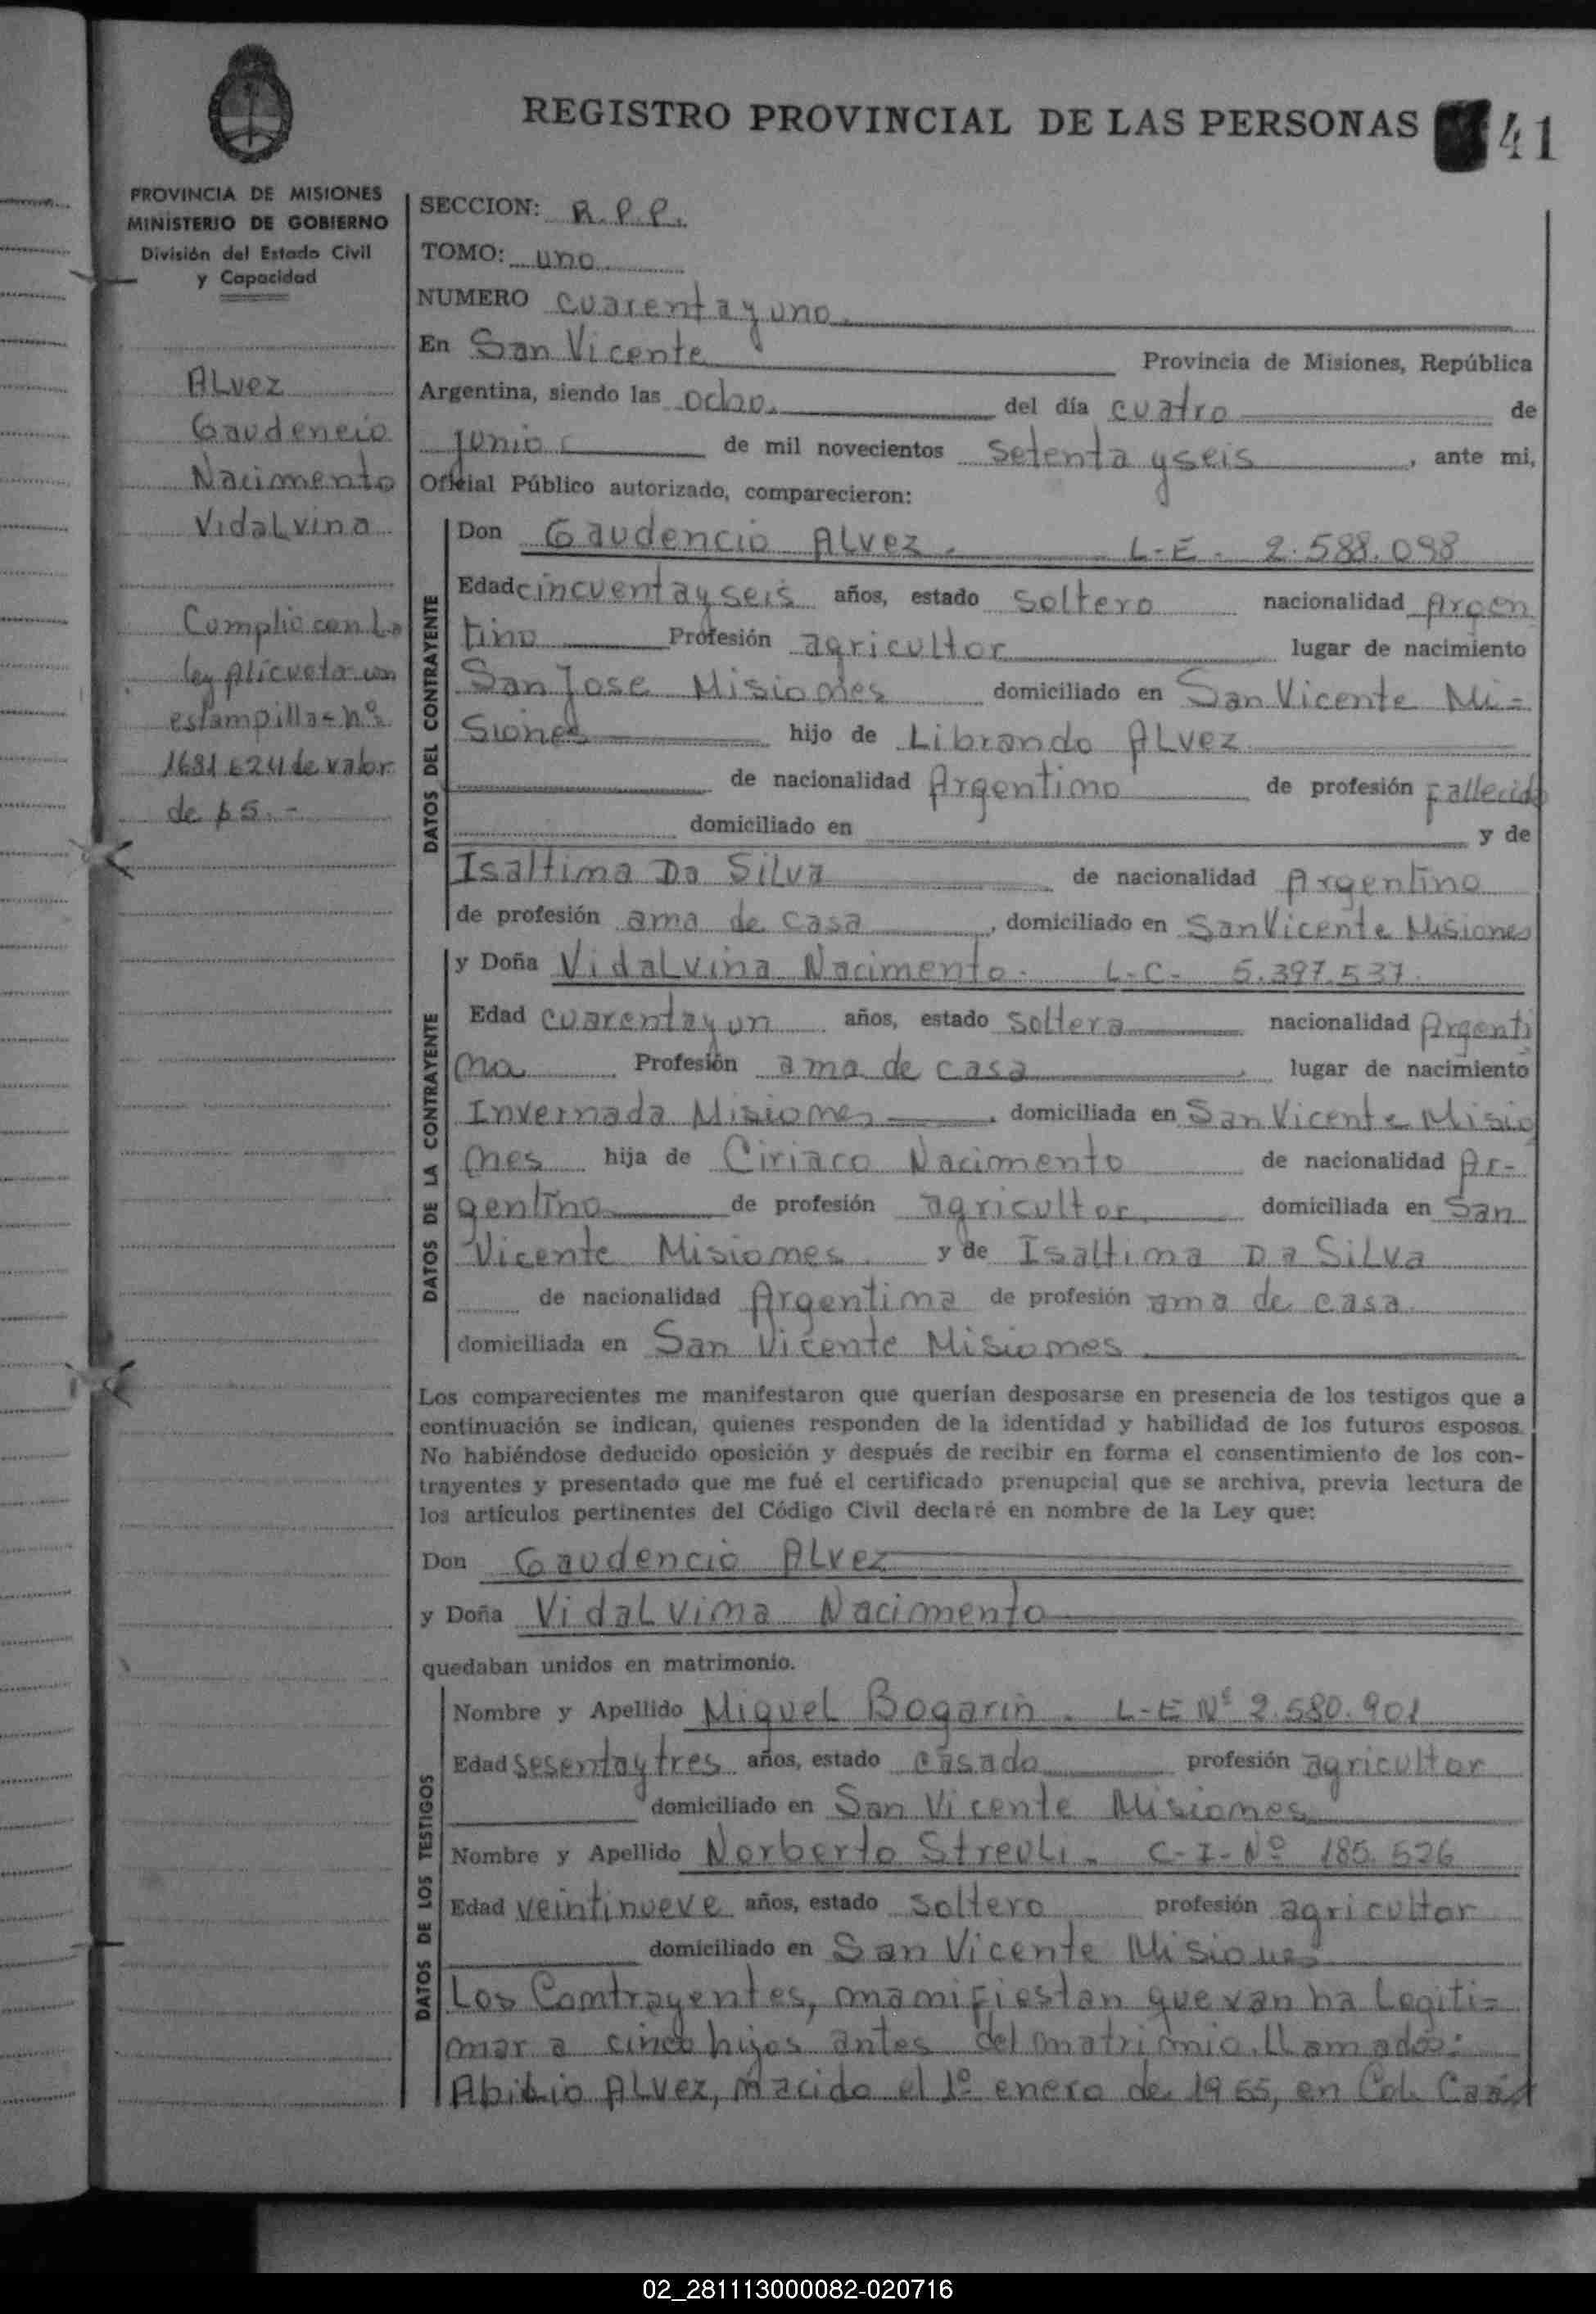 REGISTRO PROVINCIAL DE LAS PERSONAS 41
PROVINCIA DE MISIONES
MINISTERIO DE GOBIERNO
División del Estado Civil
y Capacidad
Alvez
Gaudencio
Nacimento
Vidalvina
Complio con La
ley
estampillas nº
1681624 de valor
de $5.-
SECCION: R.P.P.
TOMO: uno
NUMERO cuarenta y uno.
En San Vicente Provincia de Misiones, República
Argentina, siendo las ocho. del día cuatro de
junio de mil novecientos setenta y seis, ante mi,
Oficial Público autorizado, comparecieron:
DATOS DEL CONTRAYENTE
Don Gaudencio Alvez. L-E. 2.588.098
Edad cincuenta y seis años, estado soltero nacionalidad Argen
tino Profesión agricultor lugar de nacimiento
San Jose Misiones domiciliado en San Vicente Mi=
siones hijo de Librando Alvez
de nacionalidad Argentino de profesión fallecido
domiciliado en y de
Isaltima Da Silva de nacionalidad Argentino
de profesión ama de casa, domiciliado en San Vicente Misiones
DATOS DE LA CONTRAYENTE
y Doña Vidalvina Nacimento. L-C- 5.397.537.
Edad cuarenta y un años, estado soltera nacionalidad Argenti
na Profesión ama de casa, lugar de nacimiento
Invernada Misiones, domiciliada en San Vicente Misio
nes hija de Ciriaco Nacimento de nacionalidad Ar-
gentino de profesión agricultor domiciliada en San
Vicente Misiones. y de Isaltima Da Silva
de nacionalidad Argentina de profesión ama de casa
domiciliada en San Vicente Misiones.
Los comparecientes me manifestaron que querían desposarse en presencia de los testigos que a
continuación se indican, quienes responden de la identidad y habilidad de los futuros esposos.
No habiéndose deducido oposición y después de recibir en forma el consentimiento de los con-
trayentes y presentado que me fué el certificado prenupcial que se archiva, previa lectura de
los artículos pertinentes del Código Civil declaré en nombre de la Ley que:
Don Gaudencio Alvez
y Doña Vidalvina Nacimento
quedaban unidos en matrimonio.
DATOS DE LOS TESTIGOS
Nombre y Apellido Miguel Bogarin. L-E Nº 2.580.901
Edad sesenta y tres años, estado casado profesión agricultor
domiciliado en San Vicente Misiones
Nombre y Apellido Norberto Streuli. C-I-Nº 185.526
Edad veintinueve años, estado soltero profesión agricultor
domiciliado en San Vicente Misiones
Los Contrayentes, manifiestan que van ha Legiti=
mar a cinco hijos antes del matrimonio. llamados:
Abilio Alvez, nacido el 1º enero de 1955, en Col.
02_281113000082-020716